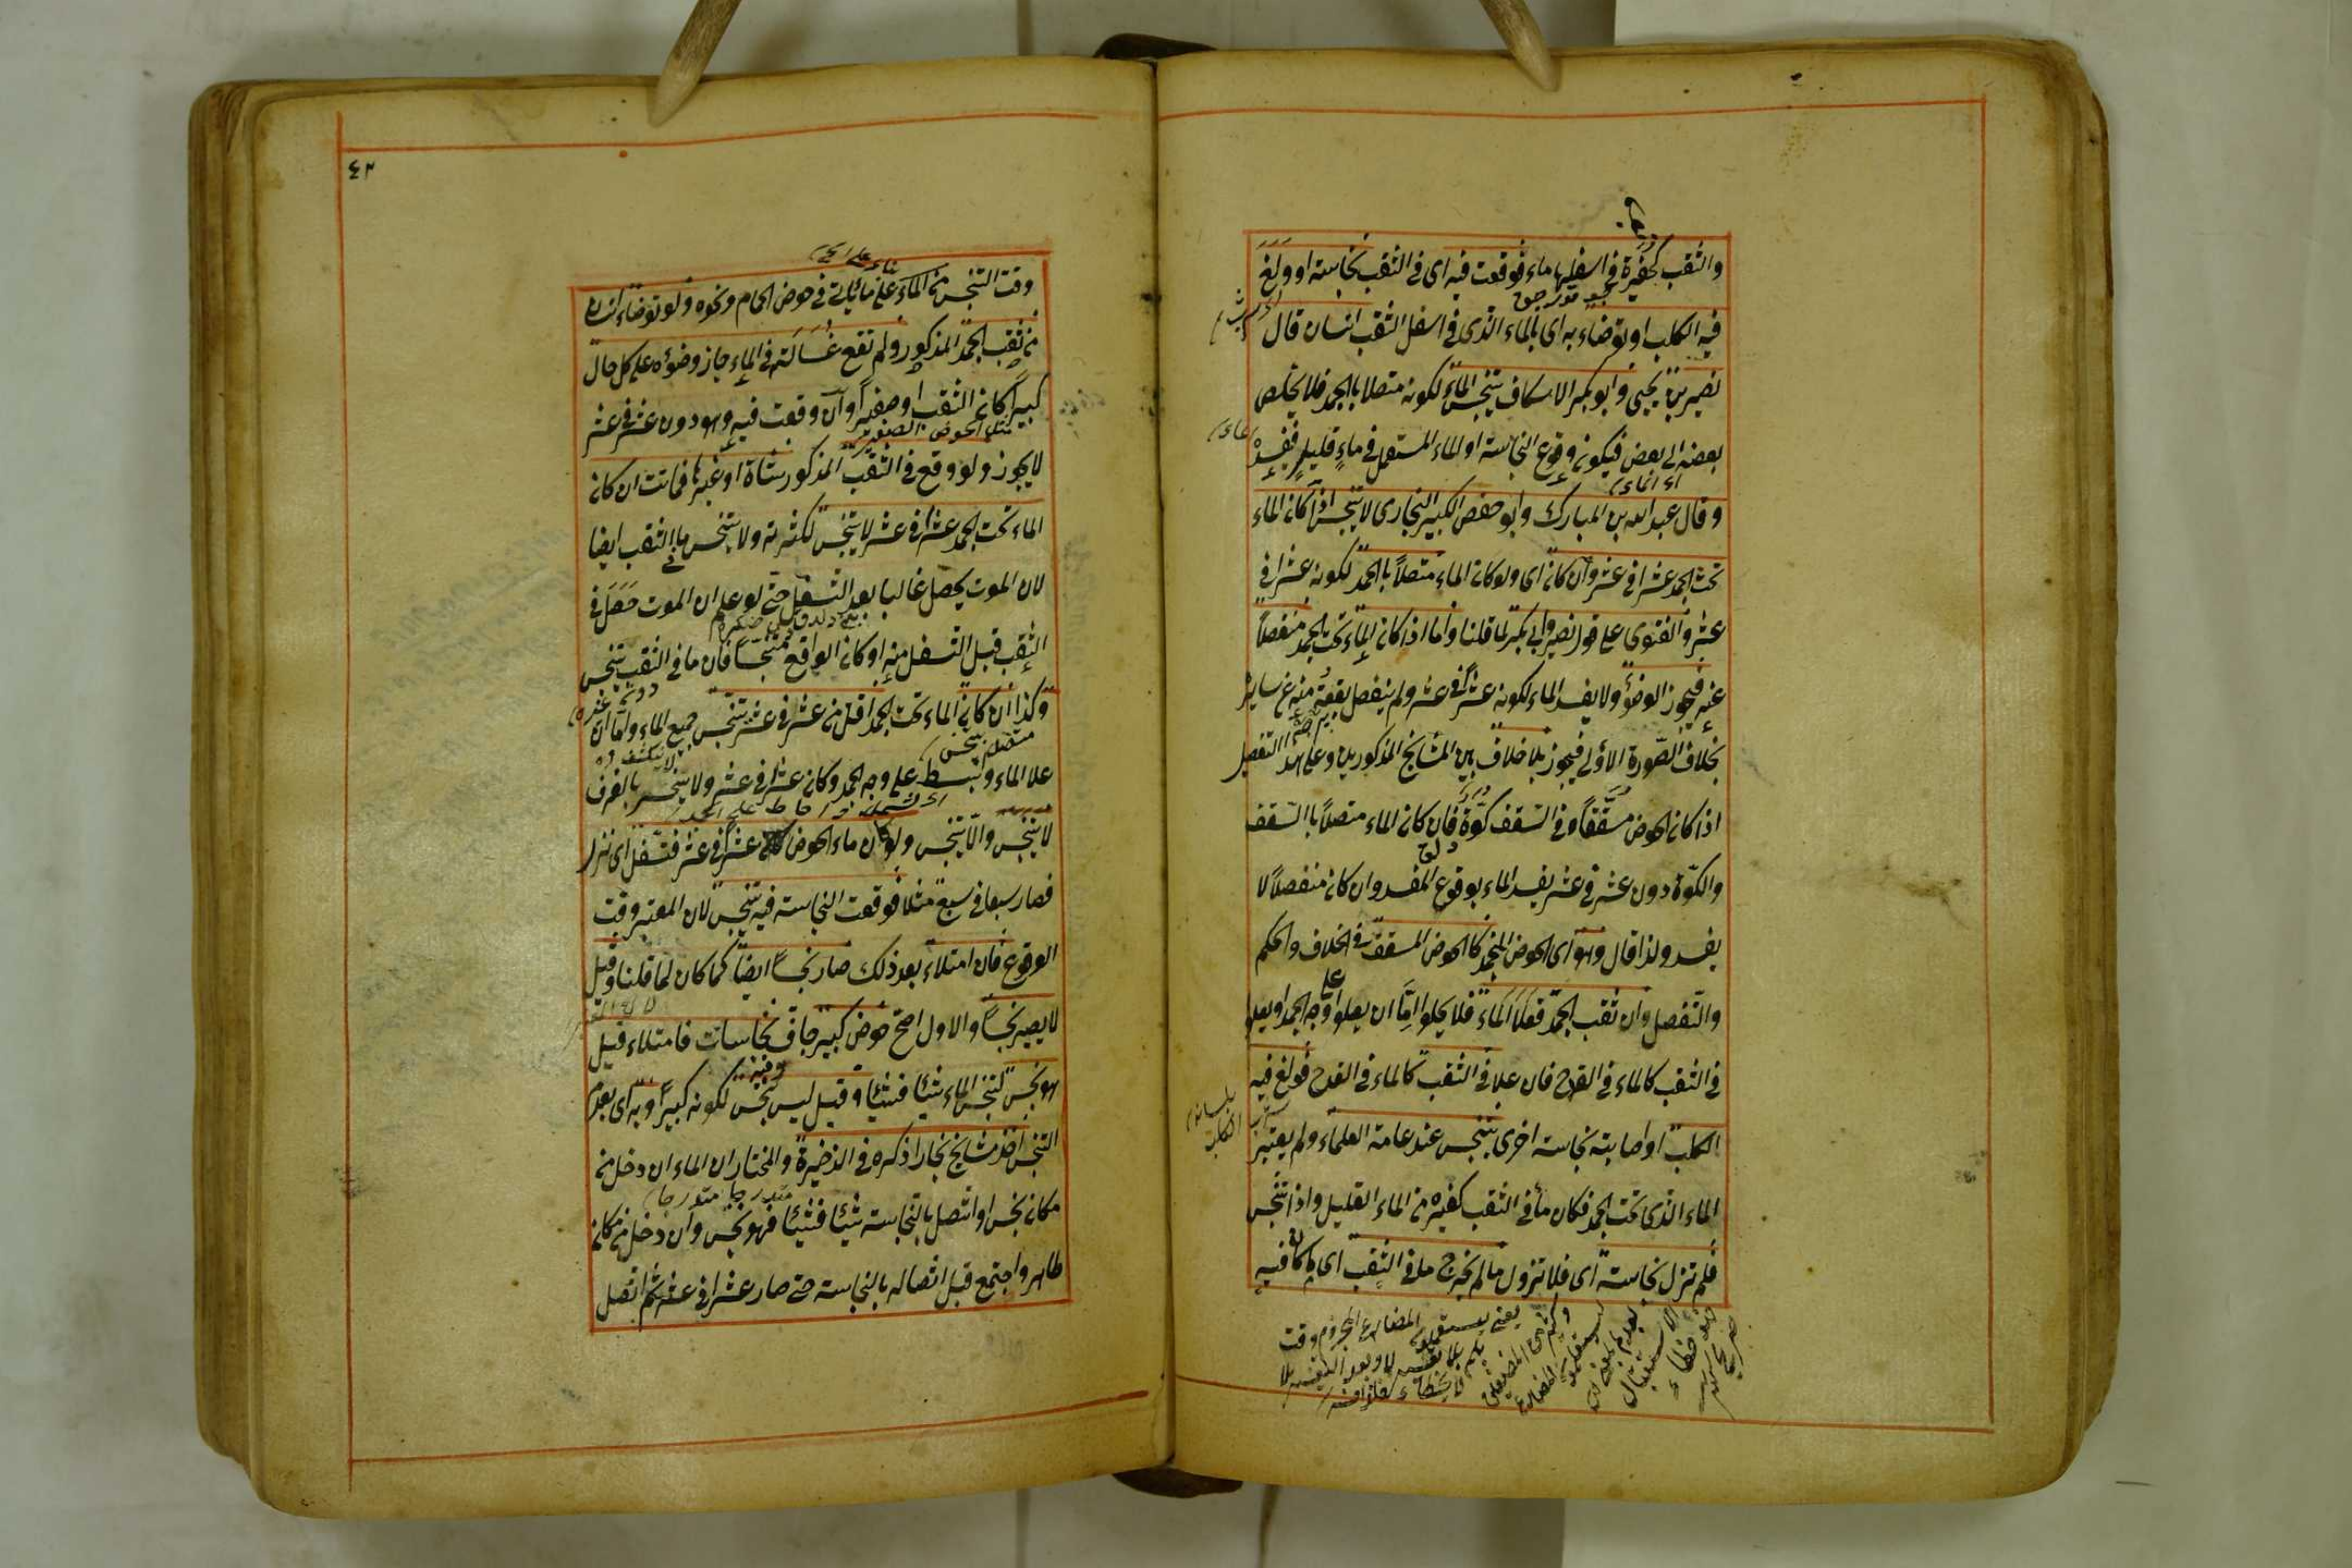 والثقب كحفيرة في اسفلها ماء فوقعت فيه اى في الثقب نجاسة او ولغ
فيه الكلب او توضاء به اى بالماء الذى في اسفل الثقب انسان قال
نصير بن يحيى وابو بكر الاسكاف يتنجس الماء لكونه متصلا باالجمد فلا يخلص
بعضه الى بعض فيكون وقوع النجاسة او الماء المستعمل في ماء قليل فيفسده
اى الماء
وقال عبد الله بن المبارك وابو حفص الكبير البخارى لا يتنجس اذا كان الماء
تحت الجمد عشرا في عشر وان كان اى ولو كان الماء متصلاً باالجمد لكونه عشرا في
عشر والفتوى على قول نصير وابى بكر لما قلنا واما اذا كان الماء تحت الجمد منفصلاً
عنه فيجوز الوضوء ولا يفسد الماء لكونه عشراً في عشر ولم ينفصل بقعة منه عن سايره
بخلاف الصورة الاولى فيجوز بلا خلاف بين المشايخ المذكورين وعلى هذا التفصيل
اذا كان الحوض مسقّفاً وفي السّقف كوّة فان كان الماء متصلاً باالسّقف
والكوّة دون عشر في عشر يفسد الماء بوقوع المفسد وان كان منفصلاً لا
يفسد ولذا قال وهو اى الحوض المنجمد كالحوض المسقّف في الخلاف والحكم
والتّفصيل وان ثقب الجمد فعلا الماء فلا يخلوا امّا ان يعلوا على وجه الجمد او يعلو
في الثقب كالماء في القدح فان علا في الثقب كالماء في القدح فولغ فيه
الكلب او اصابته نجاسة اخرى يتنجس عند عامة العلماء ولم يعتبر
الماء الذى تحت الجمد فكان ما في الثقب كغيره من الماء القليل واذا تنجس
فلم تزل نجاسته اى فلا تزول مالم يخرج ما في الثقب اى ما كان فيه
٤٢
بناء على الجمد
وقت التنجس من الماء على ما ياتى في حوض الحمام ونحوه ولو توضاء انسان
من ثقب الجمد المذكور ولم تقع غسالته في الماء جاز وضوؤه على كل حال
كبيراً كان الثقب او صغيراً وان وقعت فيه وهو دون عشر في عشر
مثل الحوض الصغير
لا يجوز ولو وقع في الثقب المذكور شاة او غيرها فماتت ان كان
الماء تحت الجمد عشراً في عشر لا يتنجس لكثرته ولا يتنجس ما في الثقب ايضا
لان الموت يحصل غالبا بعد التسفل حتى لو علم ان الموت حصل في
الثقب قبل التسفل منه او كان الواقع متنجساً فان ما في الثقب يتنجس
وكذا ان كان الماء تحت الجمد اقل من عشر في عشر يتنجس جميع الماء واما ان
علا الماء وانبسط على وجه الجمد وكان عشراً في عشر ولا ينحسر بالغرف
لا يتنجس والّا يتنجس ولو كان ماء الحوض عشراً في عشر فتسفّل اى نزل
فصار سبعا في سبع مثلا فوقعت النجاسة فيه يتنجس لان المعتبر وقت
الوقوع فان امتلاء بعد ذلك صار نجساً ايضا كما كان لما قلنا وقيل
لا يصير نجساً والاول اصح حوض كبير جافّ نجاسات فامتلاء قيل
وفيه
هو نجس لتنجس الماء شيئا فشيئا وقيل ليس نجس لكونه كبيراً وبه اى بعدم
التنجس اخذ مشايخ بخارا ذكره في الذخيرة والمختار ان الماء ان دخل من
مكان نجس او اتصل بالنجاسة شيئا فشيئا فهو نجس وان دخل من مكان
طاهر واجتمع قبل اتصاله بالنجاسة حتى صار عشرا في عشر ثم اتصل